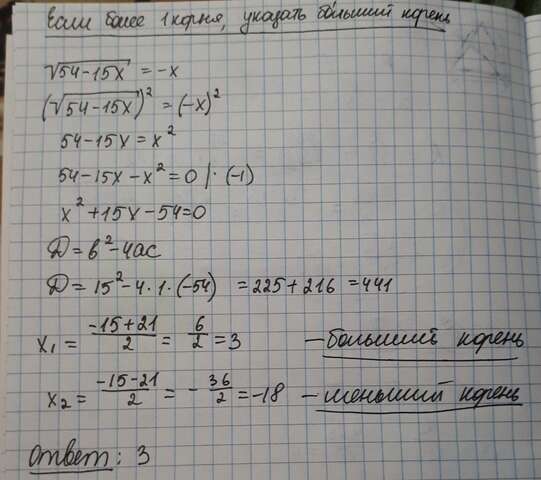 Если более 1 корня, указать больший корень
√54-15x = -x
(√54-15x)² = (-x)²
54-15x = x²
54-15x-x² = 0 |·(-1)
x²+15x-54=0
D = b²-4ac
D = 15²-4·1·(-54) = 225+216 = 441
x₁ = (-15+21)/2 = 6/2 = 3 - больший корень
x₂ = (-15-21)/2 = -36/2 = -18 - меньший корень
Ответ: 3